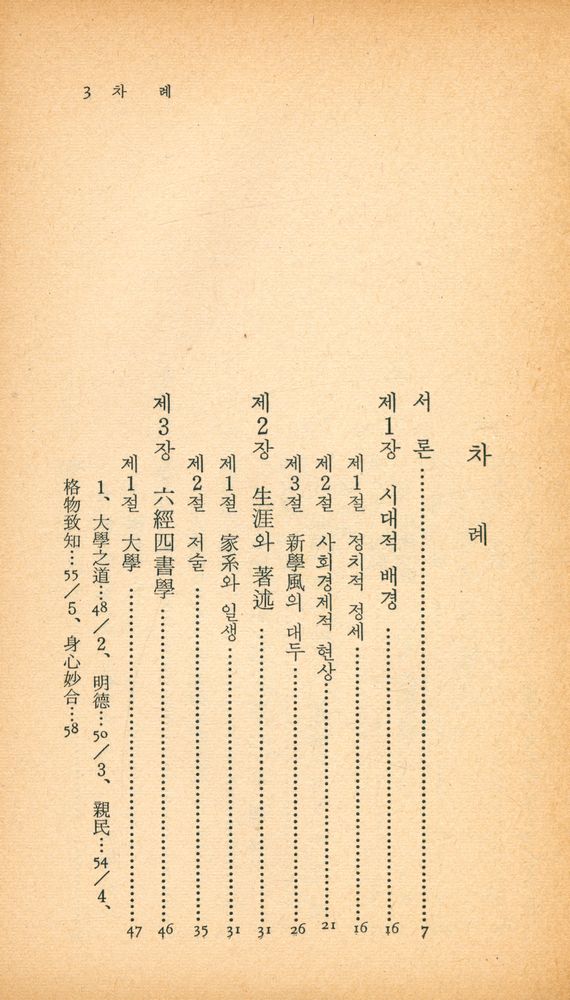 3 차 례
차 례
서 론……7
제1장 시대적 배경……16
제1절 정치적 정세……16
제2절 사회경제적 현상……21
제3절 新學風의 대두……26
제2장 生涯와 著述……31
제1절 家系와 일생……31
제2절 저술……35
제3장 六經四書學……46
제1절 大學……47
1、大學之道…48／2、明德…50／3、親民…54／4、
格物致知…55／5、身心妙合…58